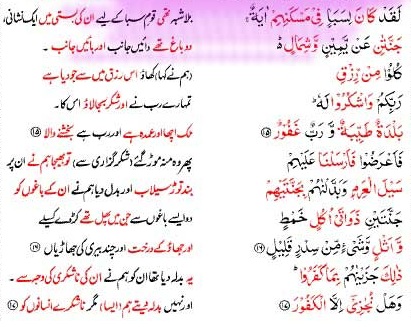 لَقَدْ كَانَ لِسَبَاٍ فِیْ مَسْكَنِهِمْ اٰیَةٌ ۚ
جَنَّتٰنِ عَنْ یَّمِیْنٍ وَّشِمَالٍ ؕ
كُلُوْا مِنْ رِّزْقِ
رَبِّكُمْ وَاشْكُرُوْا لَهٗ ؕ
بَلْدَةٌ طَیِّبَةٌ وَّ رَبٌّ غَفُوْرٌ ۝۱۵
فَاَعْرَضُوْا فَاَرْسَلْنَا عَلَیْهِمْ
سَیْلَ الْعَرِمِ وَبَدَّلْنٰهُمْ بِجَنَّتَیْهِمْ
جَنَّتَیْنِ ذَوَاتَیْ اُكُلٍ خَمْطٍ
وَّاَثْلٍ وَّشَیْءٍ مِّنْ سِدْرٍ قَلِیْلٍ ۝۱۶
ذٰلِكَ جَزَیْنٰهُمْ بِمَا كَفَرُوْا ؕ
وَهَلْ نُجٰزِیْۤ اِلَّا الْكَفُوْرَ ۝۱۷
بلاشبہ تھی قوم سبا کے لیے ان کی بستی میں ایک نشانی،
دو باغ تھے دائیں جانب اور بائیں جانب۔
(ہم نے کہا) کھاؤ اس رزق میں سے جو دیا ہے
تمہارے رب نے اور شکر بجا لاؤ اس کا۔
ملک اچھا و عمدہ ہے اور رب ہے بخشنے والا ۝۱۵
پھر وہ منہ موڑ گئے (شکر گزاری سے) تو بھیجا ہم نے ان پر
بند توڑ سیلاب اور بدل دیا ہم نے ان کے باغوں کو
دو ایسے باغوں سے جن میں پھل تھے کڑوے کسیلے
اور جھاؤ کے درخت اور چند بیری کی جھاڑیاں ۝۱۶
یہ بدلہ دیا تھا ان کو ہم نے ان کی ناشکری کی وجہ سے۔
اور نہیں بدلہ دیتے ہم (ایسا) مگر ناشکرے انسانوں کو ۝۱۷